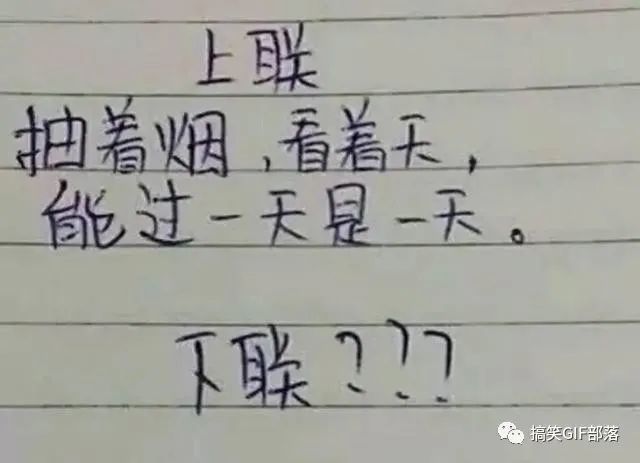 上联
抽着烟,看着天,
能过一天是一天。
下联???
搞笑GIF部落